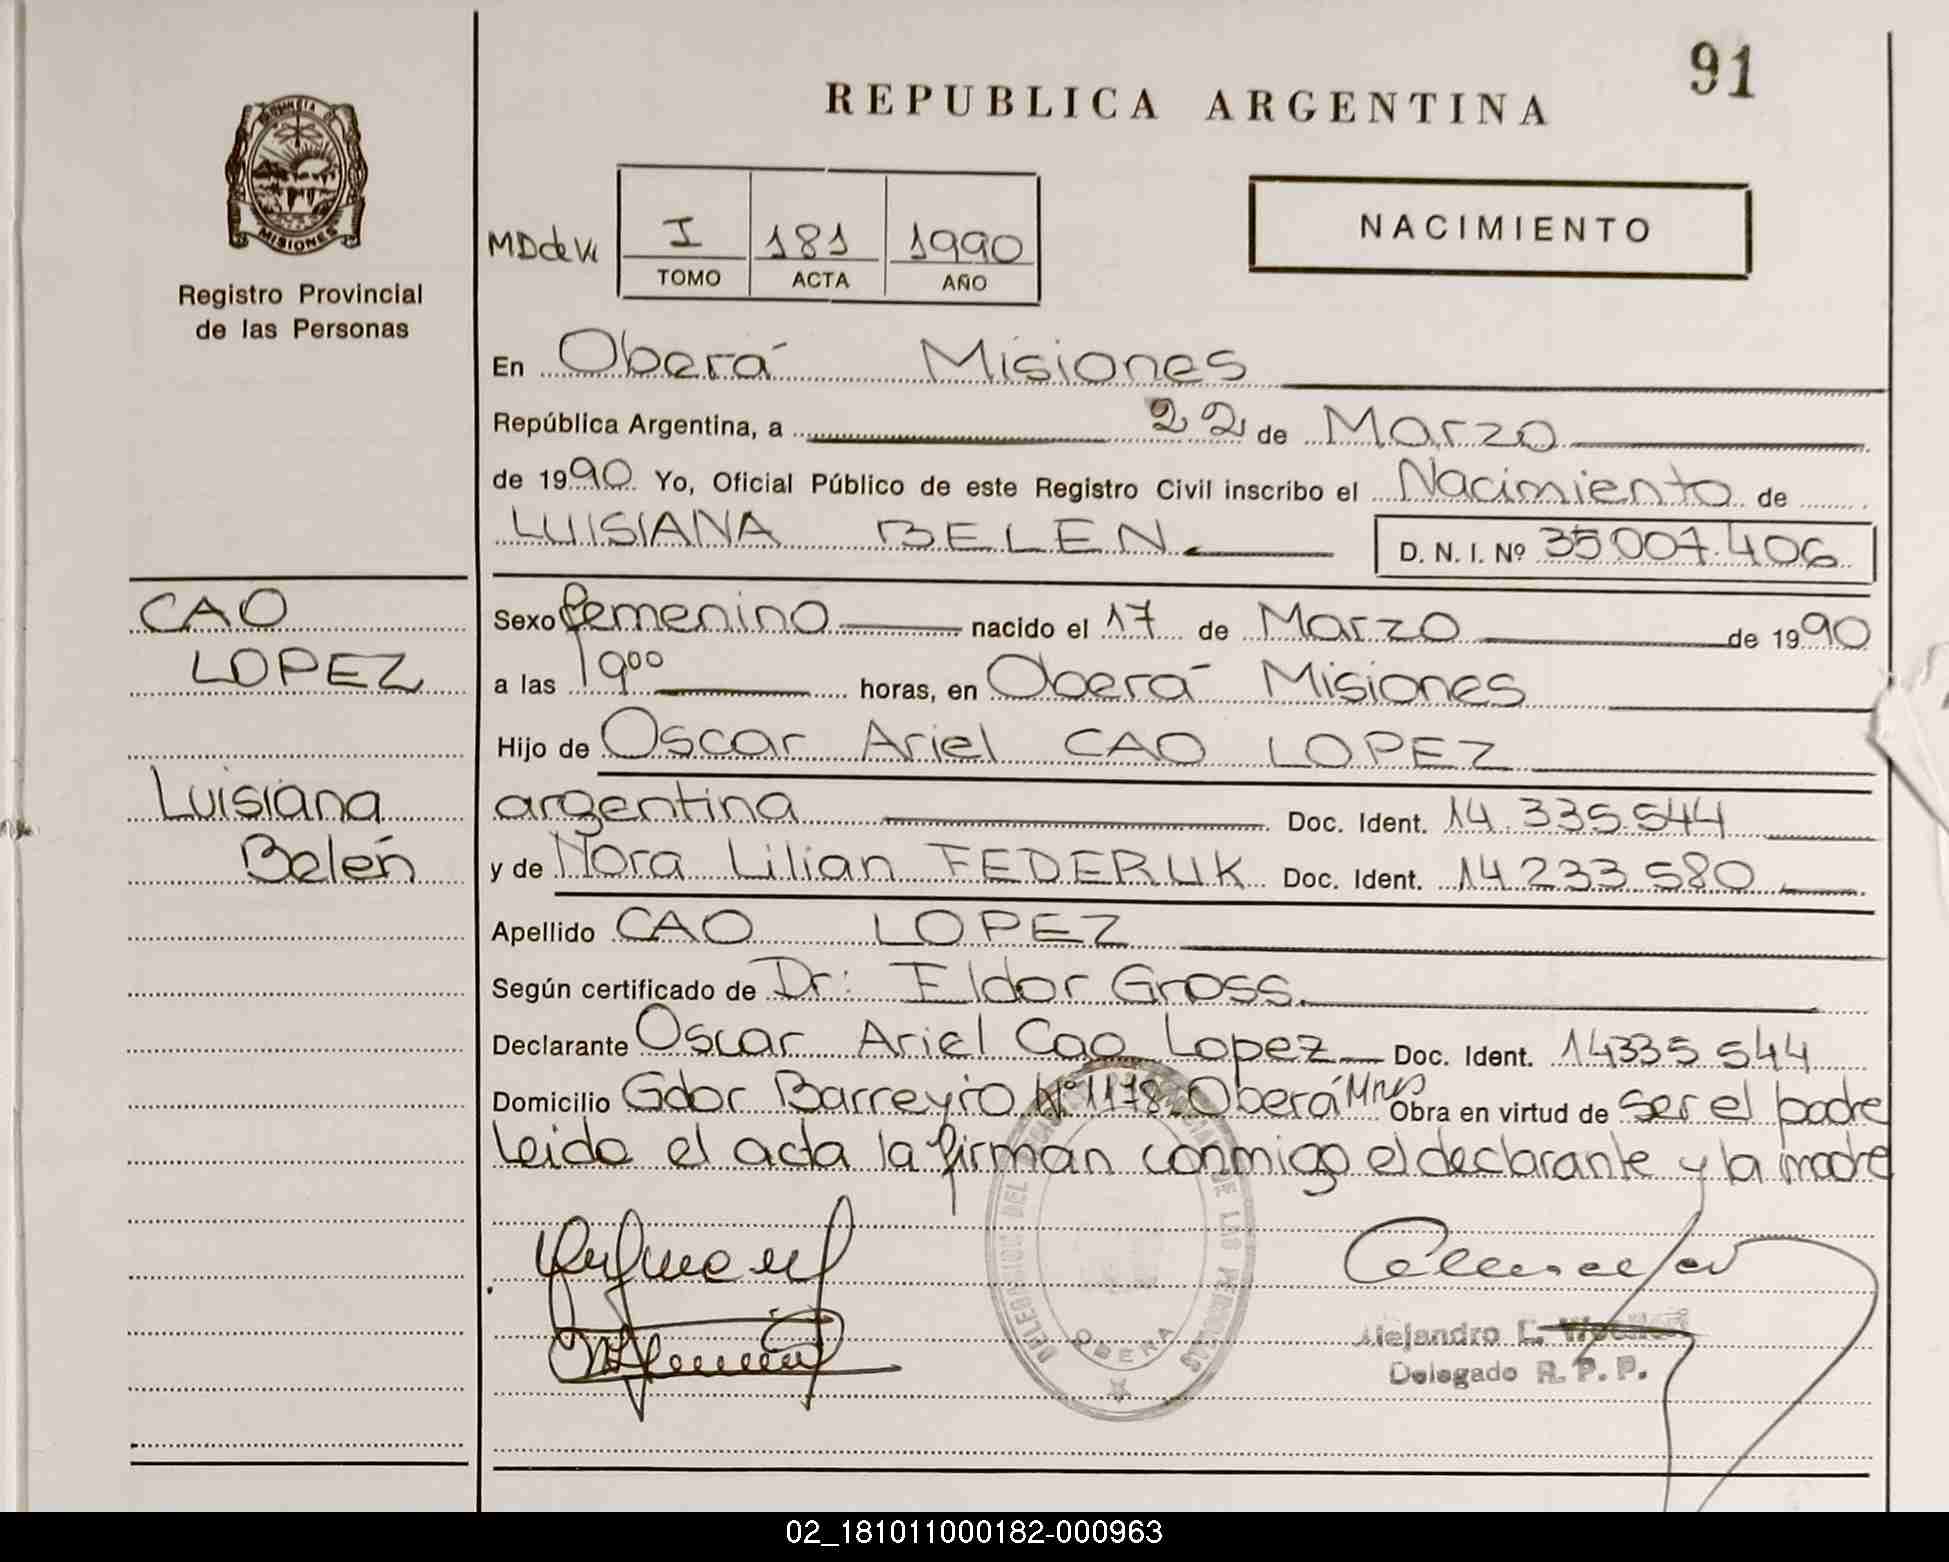 91
REPUBLICA ARGENTINA
PROVINCIA DE
MISIONES
Registro Provincial
de las Personas
NACIMIENTO
I 181 1990
TOMO ACTA AÑO
En Oberá Misiones
República Argentina, a 22 de Marzo
de 1990 Yo, Oficial Público de este Registro Civil inscribo el Nacimiento de
LUISIANA BELEN D. N. I. Nº 35.007.406
CAO
LOPEZ
Luisiana
Belén
Sexo femenino nacido el 17 de Marzo de 1990
a las 19⁰⁰ horas, en Oberá Misiones
Hijo de Oscar Ariel CAO LOPEZ
argentina Doc. Ident. 14.335.544
y de Nora Lilian FEDERUK Doc. Ident. 14.233.580
Apellido CAO LOPEZ
Según certificado de Dr: Eldor Gross.
Declarante Oscar Ariel Cao Lopez Doc. Ident. 14335544
Domicilio Gdor Barreyro Nº 1178 Oberá Mnes Obra en virtud de ser el padre
Leida el acta la firman conmigo el declarante y la madre
DELEGACION DEL DE LAS PERSONAS
OBERA
Alejandro E.
Delegado R. P. P.
02_181011000182-000963